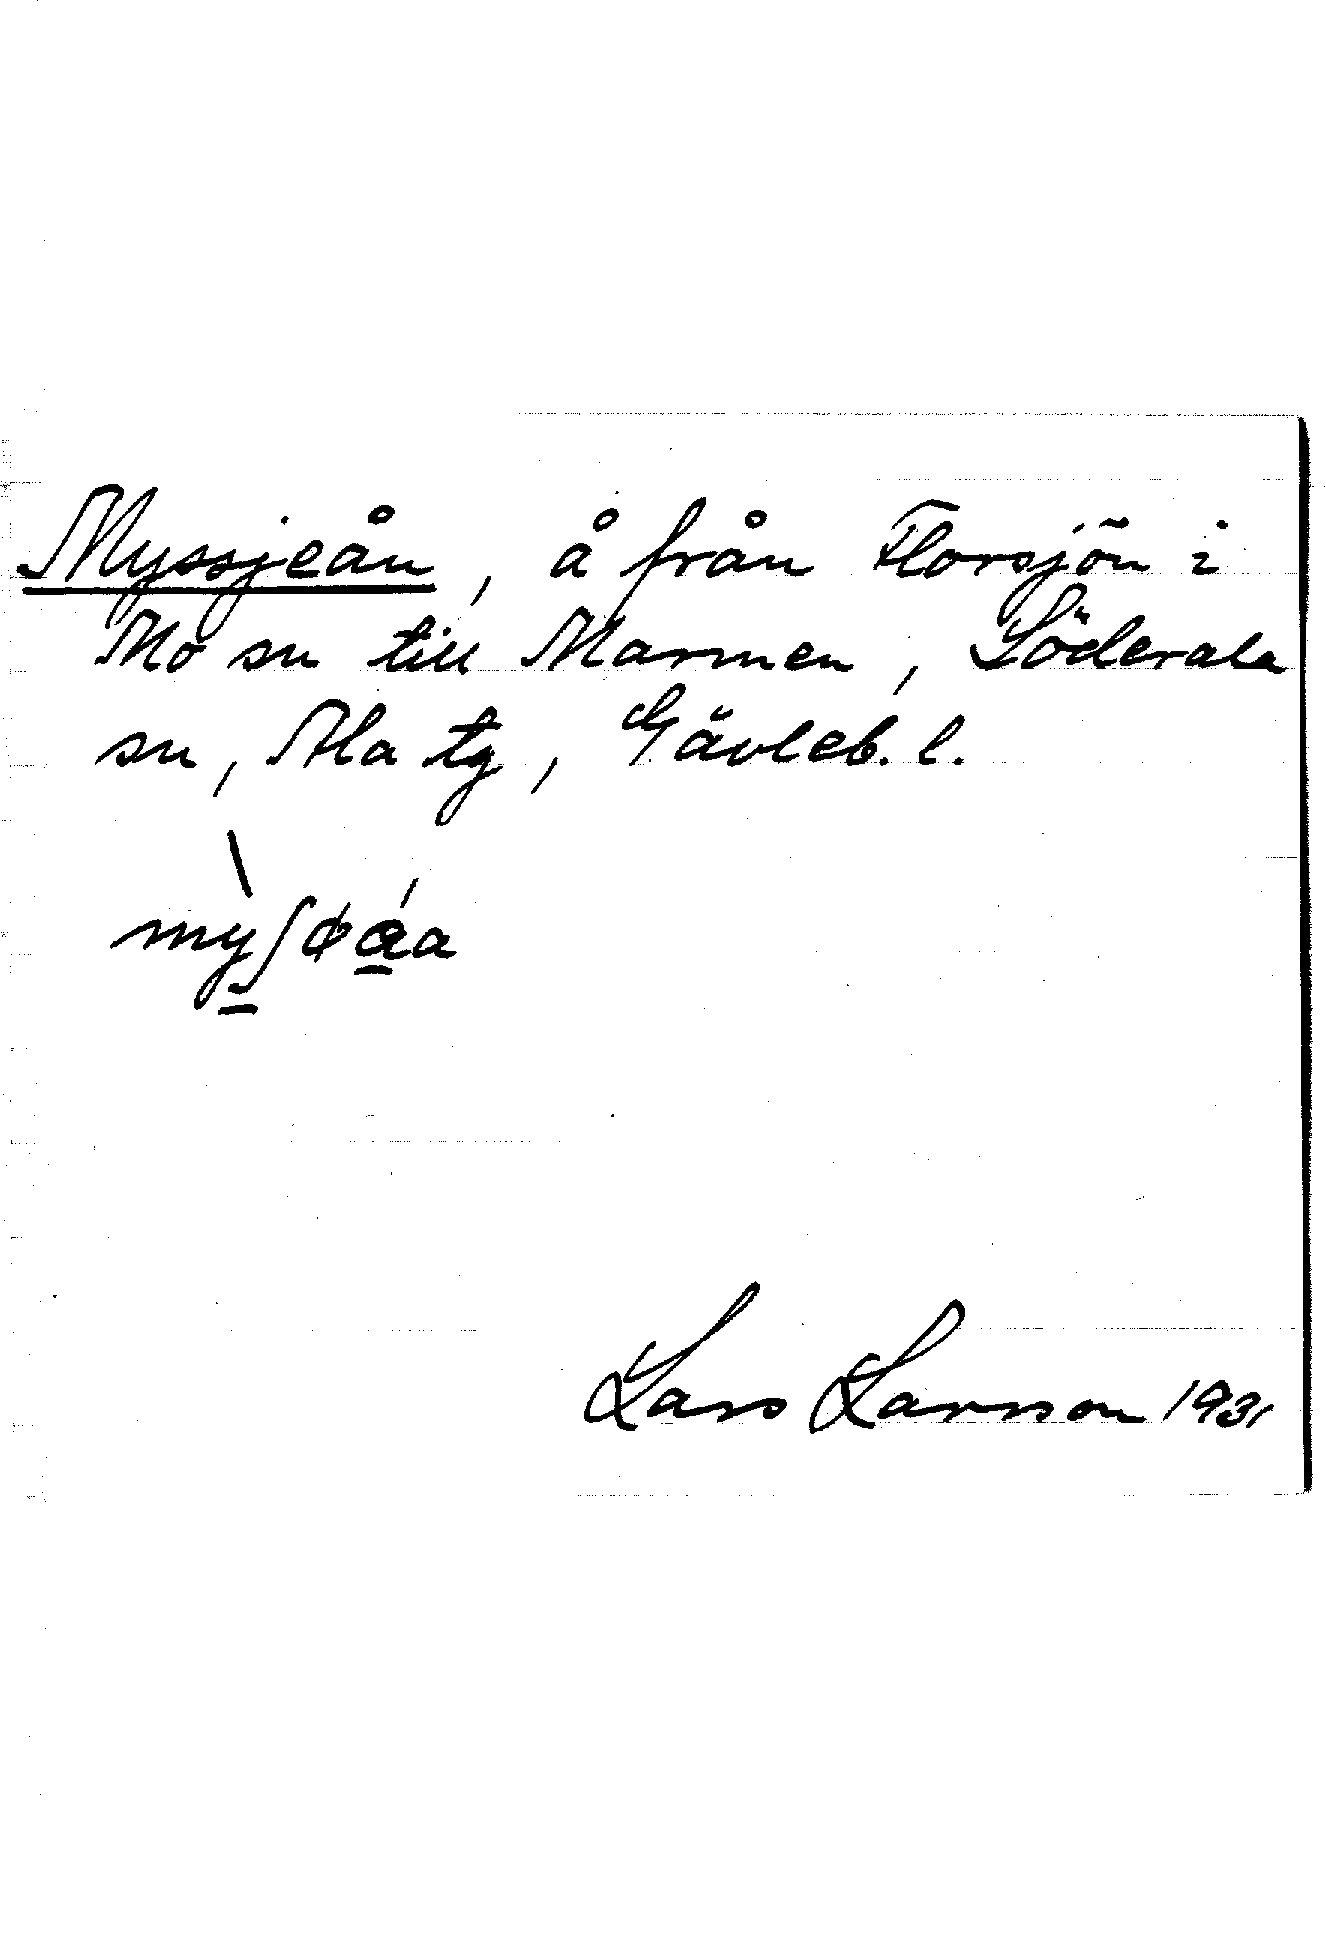 Myssjeån, å från Florsjön i
Mo sn till Marmen, Söderala
sn, Ala tg, Gävleb. l.
mỳʃǿáa
Lars Larsson 1931